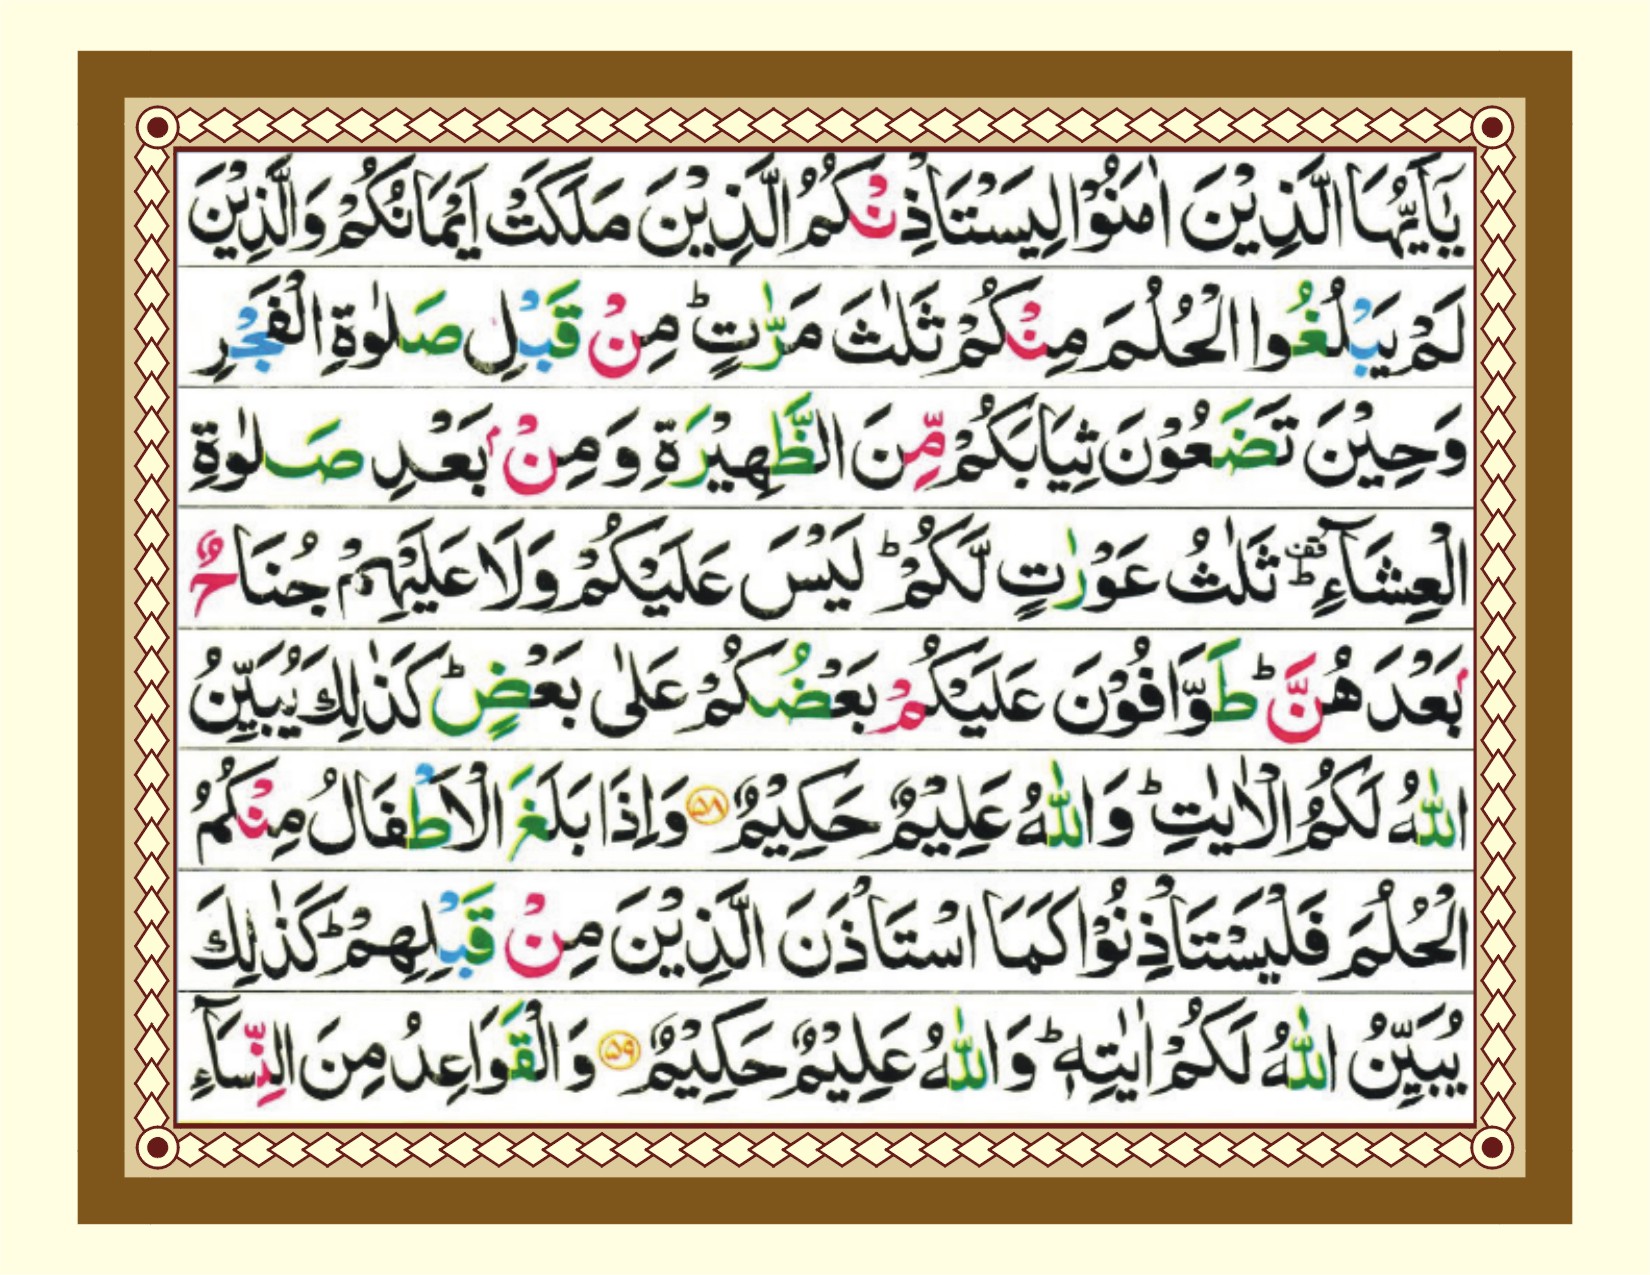 يٰۤاَيُّهَا الَّذِيْنَ اٰمَنُوْا لِيَسْتَاْذِنْكُمُ الَّذِيْنَ مَلَكَتْ اَيْمَانُكُمْ وَالَّذِيْنَ
لَمْ يَبْلُغُوا الْحُلُمَ مِنْكُمْ ثَلٰثَ مَرّٰتٍؕ مِنْ قَبْلِ صَلٰوةِ الْفَجْرِ
وَحِيْنَ تَضَعُوْنَ ثِيَابَكُمْ مِّنَ الظَّهِيْرَةِ وَمِنْۢ بَعْدِ صَلٰوةِ
الْعِشَآءِؕ قف ثَلٰثُ عَوْرٰتٍ لَّكُمْؕ لَيْسَ عَلَيْكُمْ وَلَا عَلَيْهِمْ جُنَاحٌۢ
بَعْدَهُنَّؕ طَوَّافُوْنَ عَلَيْكُمْ بَعْضُكُمْ عَلٰى بَعْضٍؕ كَذٰلِكَ يُبَيِّنُ
اللّٰهُ لَكُمُ الْاٰيٰتِؕ وَاللّٰهُ عَلِيْمٌ حَكِيْمٌ ۵۸ وَاِذَا بَلَغَ الْاَطْفَالُ مِنْكُمُ
الْحُلُمَ فَلْيَسْتَاْذِنُوْا كَمَا اسْتَاْذَنَ الَّذِيْنَ مِنْ قَبْلِهِمْؕ كَذٰلِكَ
يُبَيِّنُ اللّٰهُ لَكُمْ اٰيٰتِهٖؕ وَاللّٰهُ عَلِيْمٌ حَكِيْمٌ ۵۹ وَالْقَوَاعِدُ مِنَ النِّسَآءِ